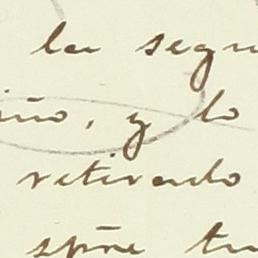 la segu
iño, y lo
retirando
spñe tu